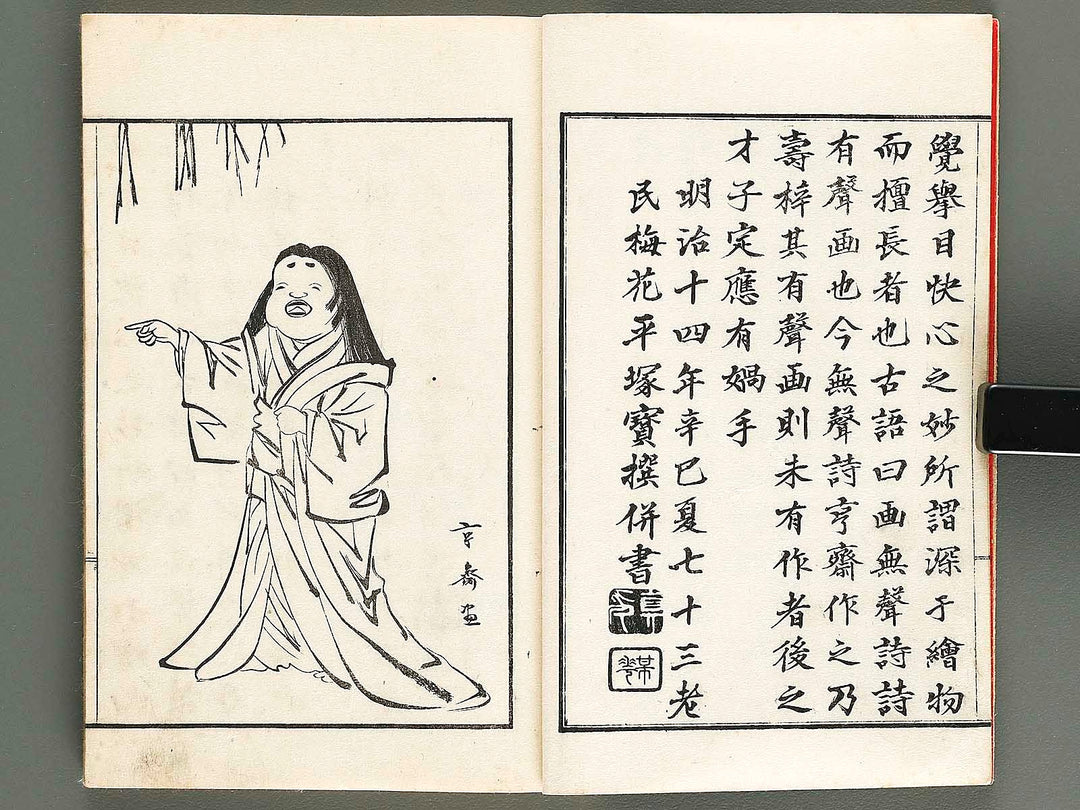 覺擧目快心之妙所謂深于繪物
而擅長者也古語曰画無聲詩詩
有聲画也今無聲詩亨齋作之乃
壽梓其有聲画則未有作者後之
才子定應有媧手
明治十四年辛巳夏七十三老
民梅花平塚寶撰併書
亨齋画